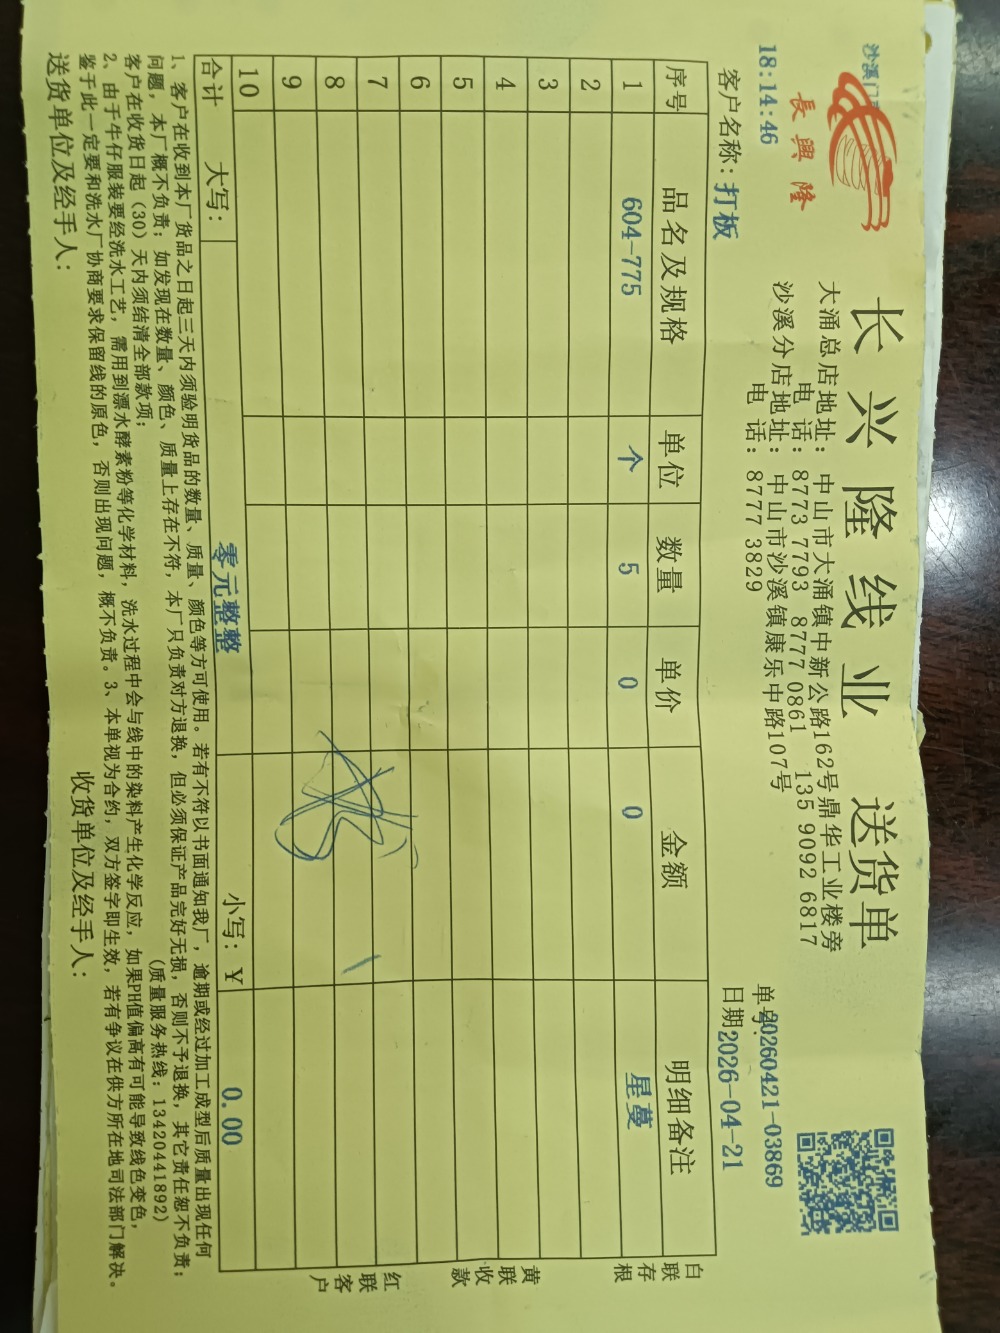 長興隆
长兴隆线业 送货单
沙溪门
18:14:46
大涌总店地址: 中山市大涌镇中新公路162号鼎华工业楼旁
电 话: 8773 7793 8777 0861 135 9092 6817
沙溪分店地址: 中山市沙溪镇康乐中路107号
电 话: 8777 3829
单号:20260421-03869
客户名称: 打板
日期:2026-04-21
序号 品名及规格 单位 数量 单价 金额 明细备注
1 604-775 个 5 0 0 星蔓
2
3
4
5
6
7
8
9
10
合计 大写: 零元整整 小写: ¥ 0.00
白联存根
黄联收款
红联客户
1、客户在收到本厂货品之日起三天内须验明货品的数量、质量、颜色等方可使用。若有不符以书面通知我厂，逾期或经过加工成型后质量出现任何
问题，本厂概不负责；如发现在数量、颜色、质量上存在不符，本厂只负责对方退换，但必须保证产品完好无损，否则不予退换，其它责任恕不负责；
客户在收货日起（30）天内须结清全部款项； (质量服务热线: 13420441892)
2、由于牛仔服装要经洗水工艺，需用到漂水酵素粉等化学材料，洗水过程中会与线中的染料产生化学反应，如果PH值偏高有可能导致线色变色，
鉴于此一定要和洗水厂协商要求保留线的原色，否则出现问题，概不负责。3、本单视为合约，双方签字即生效，若有争议在供方所在地司法部门解决。
送货单位及经手人: 收货单位及经手人: